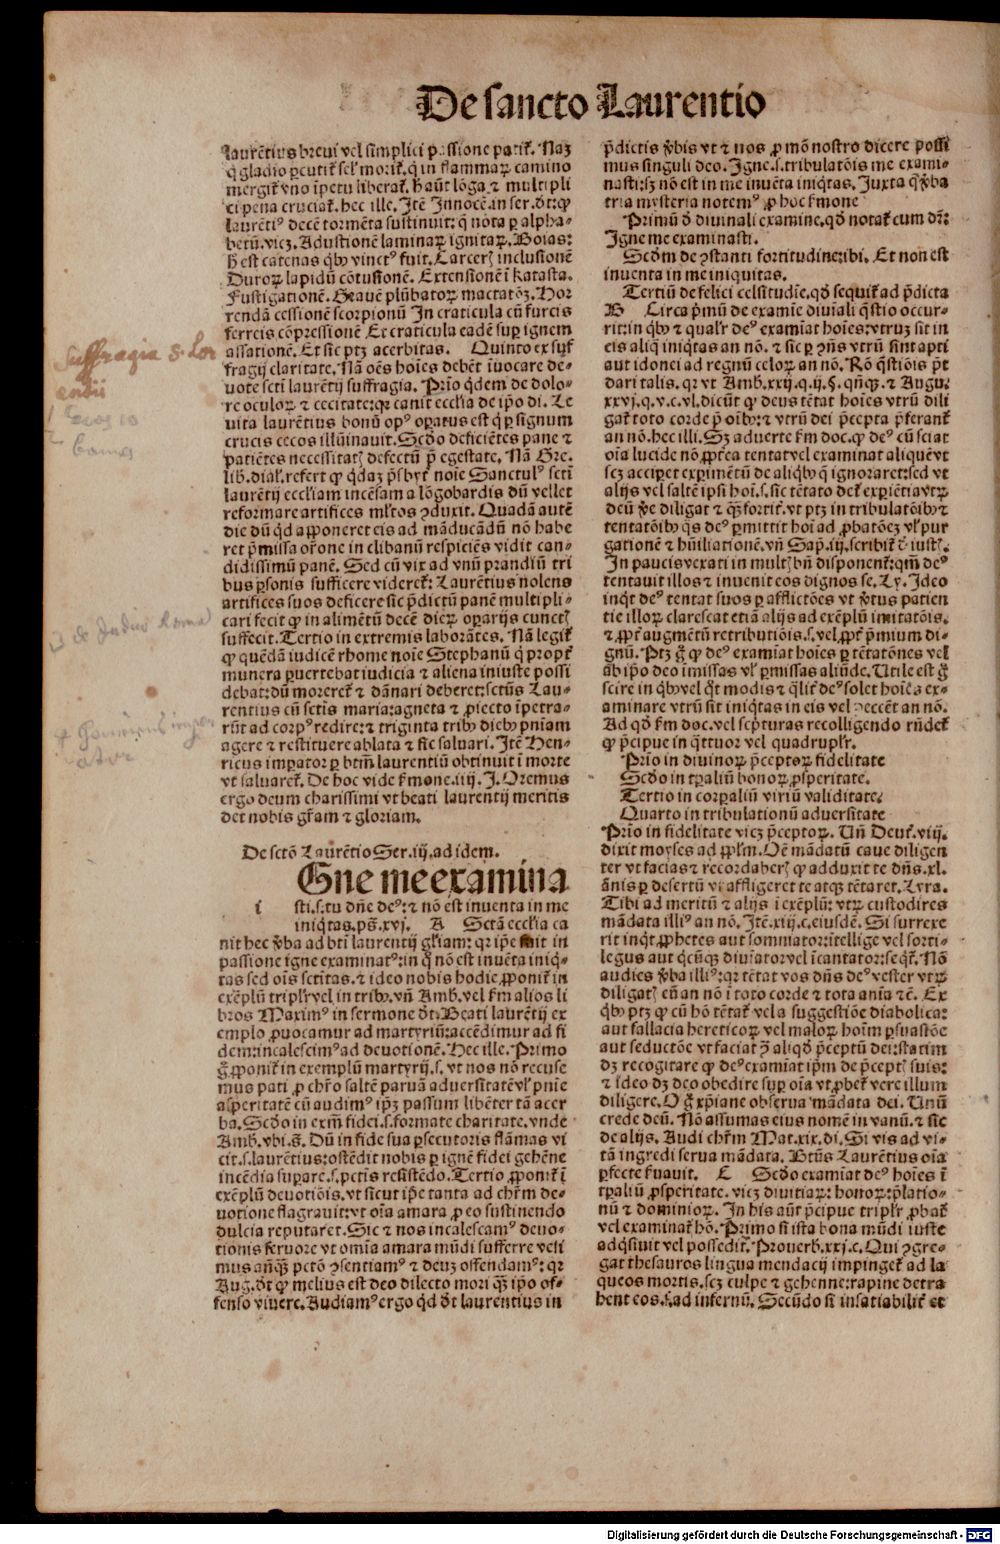 De sancto Laurentio
laurētius breui vel simplici passione patit᷑. Naʒ
q̄ gladio ꝑcutit᷑ sel᷑ morit᷑. q̄ in flammaꝝ camino
mergit᷑ vno īpetu liberat᷑. hāuc lōga ⁊ multipli
ci pena cruciat᷑. hec ille. Itē Innocē. in ser. d̄t: ꝙ
laurētiꝰ decē tormēta sustinuit: q̄ nota ꝑ alpha-
betū. vicʒ. Adustionē laminaꝝ ignitaꝝ. Boias:
h̄ est catenas q̄bꝰ vinctꝰ fuit. Carcerꝭ inclusionē
Duroꝝ lapidū cōtusionē. Extensionē ī katasta.
Fustigationē. Grauē plūbatoꝝ mactatōeʒ. Hor
rendā cessionē scorpionū In craticula cū furcis
ferreis cōpressionē Et craticula eadē suꝑ ignem
assationē. Et sic ptʒ acerbitas. Quinto ex suf
fragij claritate. Nā oēs hoīes debēt īuocare de-
uote scti laurētij suffragia. Prīo q̄dem de dolo-
re oculoꝝ ⁊ cecitate: qꝛ canit ecclīa de ip̄o di. Le
uita laurētius bonū opꝰ oꝑatus est q̄ ꝑ signum
crucis cecos illūinauit. Scd̄o deficiētes pane ⁊
patiētes necessitatꝭ defectū p̄ egestate. Nā Gre.
lib. dial᷑. refert ꝙ q̄daʒ p̄sbyt᷑ noīe Sanctulꝰ scti
laurētij eccliam incēsam a lōgobardis dū vellet
reformare artifices ml̄tos ꝯduxit. Quadā autē
die dū qd̄ apponeret eis ad māducādū nō habe
ret p̄missa or̄one in clibanū respiciēs vidit can-
didissimū panē. Sed cū vix ad vnū prandiū tri
bus ꝑsonis sufficere videret᷑: Laurētius nolens
artifices suos deficere sic p̄dictū panē multipli-
cari fecit ꝙ in alimētū decē dieꝝ oꝑarijs cunctꝭ
suffecit. Tertio in extremis laborātes. Nā legit᷑
ꝙ quēdā iudicē rhome noīe Stephanū q̄ propt᷑
munera ꝑuertebat iudicia ⁊ aliena iniuste possi
debat: dū moreret᷑ ⁊ dānari deberet: sctūs Lau-
rentius cū sctis maria: agneta ⁊ ꝓiecto īpetra-
rūt ad corpꝰ redire: ⁊ triginta tribꝰ diebꝰ pn̄iam
agere ⁊ restituere ablata ⁊ sic saluari. Itē Hen-
ricus imꝑator ꝑ btm̄ laurentiū obtinuit ī morte
vt saluaret᷑. De hoc vide ẜmone. iiij. J. Oremus
ergo deum charissimi vt beati laurentij meritis
det nobis gr̄am ⁊ gloriam.
De sctō Laurētio Ser. iij. ad idem.
Gne me examina
i sti. s. tu dn̄e deꝰ: ⁊ nō est inuenta in me
iniq̄tas. ps̄. xvj. A Sctā ecclīa ca
nit hec v̄ba ad bti laurentij gl̄iam: qꝛ ip̄e fuit in
passione igne examinatꝰ: in q̄ nō est inuēta iniq̄-
tas sed oīs sctitas. ⁊ ideo nobis hodie ꝓponit᷑ in
exēplū tripl᷑r vel in tribꝰ. vn̄ Amb. vel ẜm alios li
bros Maximꝰ in sermone d̄t. Beati laurētij ex
emplo ꝓuocamur ad martyriū: accēdimur ad fi
dem: incalescimꝰ ad deuotionē. Hec ille. Primo
ḡ ꝓponit᷑ in exemplū martyrij. s. vt nos nō recuse
mus pati ꝓ chr̄o saltē paruā aduersitatē vl᷑ pn̄ie
asꝑitatē cū audimꝰ ip̄ʒ passum libēter tā acer
ba. Scd̄o in exm̄ fidei. s. formate charitate. vnde
Amb. vbi s̄. Dū in fide sua ꝑsecutoris flāmas vi
cit. s. laurētius: ostēdit nobis ꝑ ignē fidei gehēne
incēdia suꝑare. s. pctīs resistēdo. Tertio ꝓponit᷑ ī
exēplū deuotiōis. vt sicut ip̄e tanta ad chr̄m de-
uotione flagrauit: vt oīa amara ꝓ eo sustinendo
dulcia reputaret. Sic ⁊ nos incalescamꝰ deuo-
tionis feruore vt omīa amara mūdi sufferre veli
mus anq̄ꝫ pctō ꝯsentiamꝰ ⁊ deuʒ offendamꝰ: qꝛ
Aug. d̄t ꝙ melius est deo dilecto mori q̄ꝫ ip̄o of-
fenso viuere. Audiamꝰ ergo qd̄ d̄t laurentius in
p̄dictis v̄bis vt ⁊ nos ꝓ mō nostro dicere possi
mus singuli deo. Igne. s. tribulatōis me exami-
nasti: sʒ nō est in me inuēta iniq̄tas. Juxta q̄ v̄ba
tria mysteria notemꝰ ꝓ hoc ẜmone
Primū d̄ diuinali examine. qd̄ notat᷑ cum dr̄:
Igne me examinasti.
Scd̄m de ꝯstanti fortitudine: ibi. Et non est
inuenta in me iniquitas.
Tertiū de felici celsitudīe. qd̄ sequit᷑ ad p̄dicta
B Circa p̄mū de examīe diuīali q̄stio occur-
rit: in q̄bꝰ ⁊ qualr᷑ deꝰ examīat hoīes: vtruʒ sit in
eis aliq̄ iniq̄tas an nō. ⁊ sic ꝑ ꝯn̄s vtrū sint apti
aut idonei ad regnū celoꝝ an nō. Rō q̄stiōis p̄t
dari talis. qꝛ vt Amb. xxij. q. ij. §. qn̄qꝫ. ⁊ Augu.
xxvj. q. v. c. vl. dicūt ꝙ deus tētat hoīes vtrū dili
gat᷑ toto corde p̄ oībꝰ: ⁊ vtrū dei p̄cepta p̄ferant᷑
an nō. hec illi. Sʒ aduerte ẜm doc. ꝙ deꝰ cū sciat
oīa lucide nō ꝓpt᷑ea tentat vel examinat aliquē vt
scʒ accipet exꝑimētū de aliq̄bꝰ q̄ ignoraret: sed vt
alijs vel saltē ipsi hoī. s. sic tētato det᷑ exꝑiētia vtꝝ
deū v̄e diligat ⁊ q̄ꝫ fortit᷑. vt ptʒ in tribulatōibꝰ ⁊
tentatōibꝰ q̄s deꝰ ꝑmittit hoī ad ꝓbatōeʒ vl᷑ pur
gationē ⁊ hūiliationē. vn̄ Sap. iij. scribit᷑ d̄ iustꝭ.
In paucis vexati in multꝭ bn̄ disponent᷑: qm̄ deꝰ
tentauit illos ⁊ inuenit eos dignos se. Ly. Ideo
inq̄t deꝰ tentat suos ꝑ afflictōes vt v̄tus patien
tie illoꝝ clarescat etiā alijs ad exēplū imitatōis.
⁊ ꝓpt᷑ augmētū retributiōis. s. vel ꝓpt᷑ p̄mium di-
gnū. Ptʒ ḡ ꝙ deꝰ examīat hoīes ꝑ tētatōnes vel
ab ip̄o deo imissas vl᷑ ꝑmissas aliūde. Utile est ḡ
scire in q̄bꝰ vel q̄t modis ⁊ q̄lit᷑ deꝰ solet hoīes ex-
aminare vtrū sit iniq̄tas in eis vel ꝯeccēt an nō.
Ad qd̄ ẜm doc. vel scpturas recolligendo rn̄det᷑
ꝙ p̄cipue in q̄ttuor vel quadrupl᷑r.
Prīo in diuinoꝝ p̄ceptoꝝ fidelitate
Scd̄o in tꝑaliū honoꝝ ꝓsperitate.
Tertio in corꝑaliū viriū validitate.
Quarto in tribulationū aduersitate
Prīo in fidelitate vicʒ p̄ceptoꝝ. Un̄ Deut᷑. viij.
dixit moyses ad ppl̄m. Oē mādatū caue diligen
ter vt facias ⁊ recordaberꝭ ꝙ adduxit te dn̄s. xl.
ānis ꝑ desertū vt affligeret te atqꝫ tētaret. Lyra.
Tibi ad meritū ⁊ alijs ī exēplū: vtꝝ custodires
mādata illiꝰ an nō. Itē. xiij. c. eiusdē. Si surrexe
rit inq̄t ꝓphetes aut somniator: ītellige vel sorti-
legus aut q̄cūqꝫ diuīator vel īcantator: seq̄t᷑. Nō
audies v̄ba illiꝰ: qꝛ tētat vos dn̄s deꝰ vester vtꝝ
diligatꝭ eū an nō ī toto corde ⁊ tota anīa ⁊c̄. Ex
q̄bꝰ ptʒ ꝙ cū hō tētat᷑ vel a suggestiōe diabolica:
aut fallacia hereticoꝝ vel maloꝝ hoīm ꝑsuasiōe
aut seductōe vt faciat ꝯ̄ aliqd̄ p̄ceptū dei: statim
dʒ recogitare ꝙ deꝰ examīat ip̄m de p̄ceptꝭ suis:
⁊ ideo dʒ deo obedire suꝑ oīa vt ꝓbet᷑ vere illum
diligere. O ḡ xp̄iane obserua mādata dei. Unū
crede deū. Nō assumas eius nomē in vanū. ⁊ sic
de alijs. Audi chr̄m Mat. xix. di. Si vis ad vi-
tā ingredi serua mādata. Btūs Laurētius oīa
ꝑfecte ẜuauit. C Scd̄o examīat deꝰ hoīes ī
tꝑaliū ꝓsperitate. vicʒ diuitiaꝝ: honoꝝ: p̄latio-
nū ⁊ dominioꝝ. In his aūt p̄cipue tripl᷑r ꝓbat᷑
vel examinat᷑ hō. Primo si ista bona mūdi iuste
adq̄siuit vel possedit᷑. Prouerb. xxj. c. Qui ꝯgre-
gat thesauros lingua mendacij impinget᷑ ad la
queos mortis. scʒ culpe ⁊ gehenne: rapine detra
hent eos. s. ad infernū. Scd̄o si insatiabilit᷑ et
Suffragia S. Lor
entii